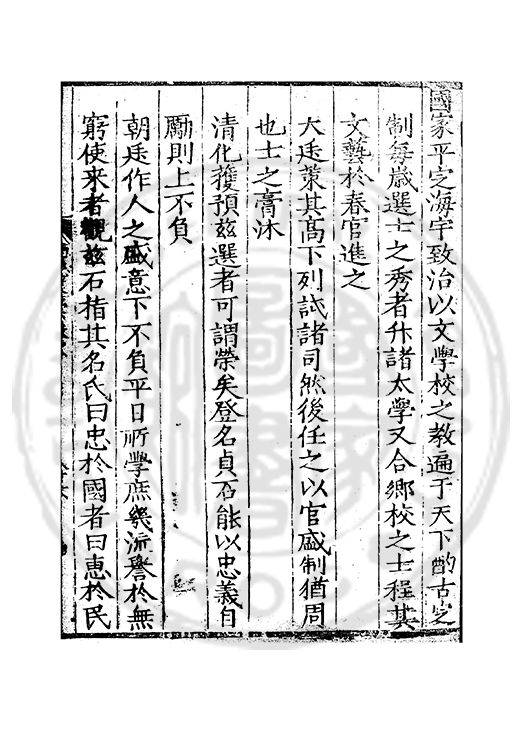 國家平定海宇致治以文學校之教遍于天下酌古定
制每歲選士之秀者升諸太學又合鄉校之士程其
文藝於春官進之
大廷策其高下列試諸司然後任之以官盛制猶周
也士之膏沐
清化獲預兹選者可謂榮矣登名貞石能以忠義自
勵則上不負
朝廷作人之盛意下不負平日所學庶幾流譽於無
窮使来者觀兹石指其名氏曰忠於國者曰惠於民